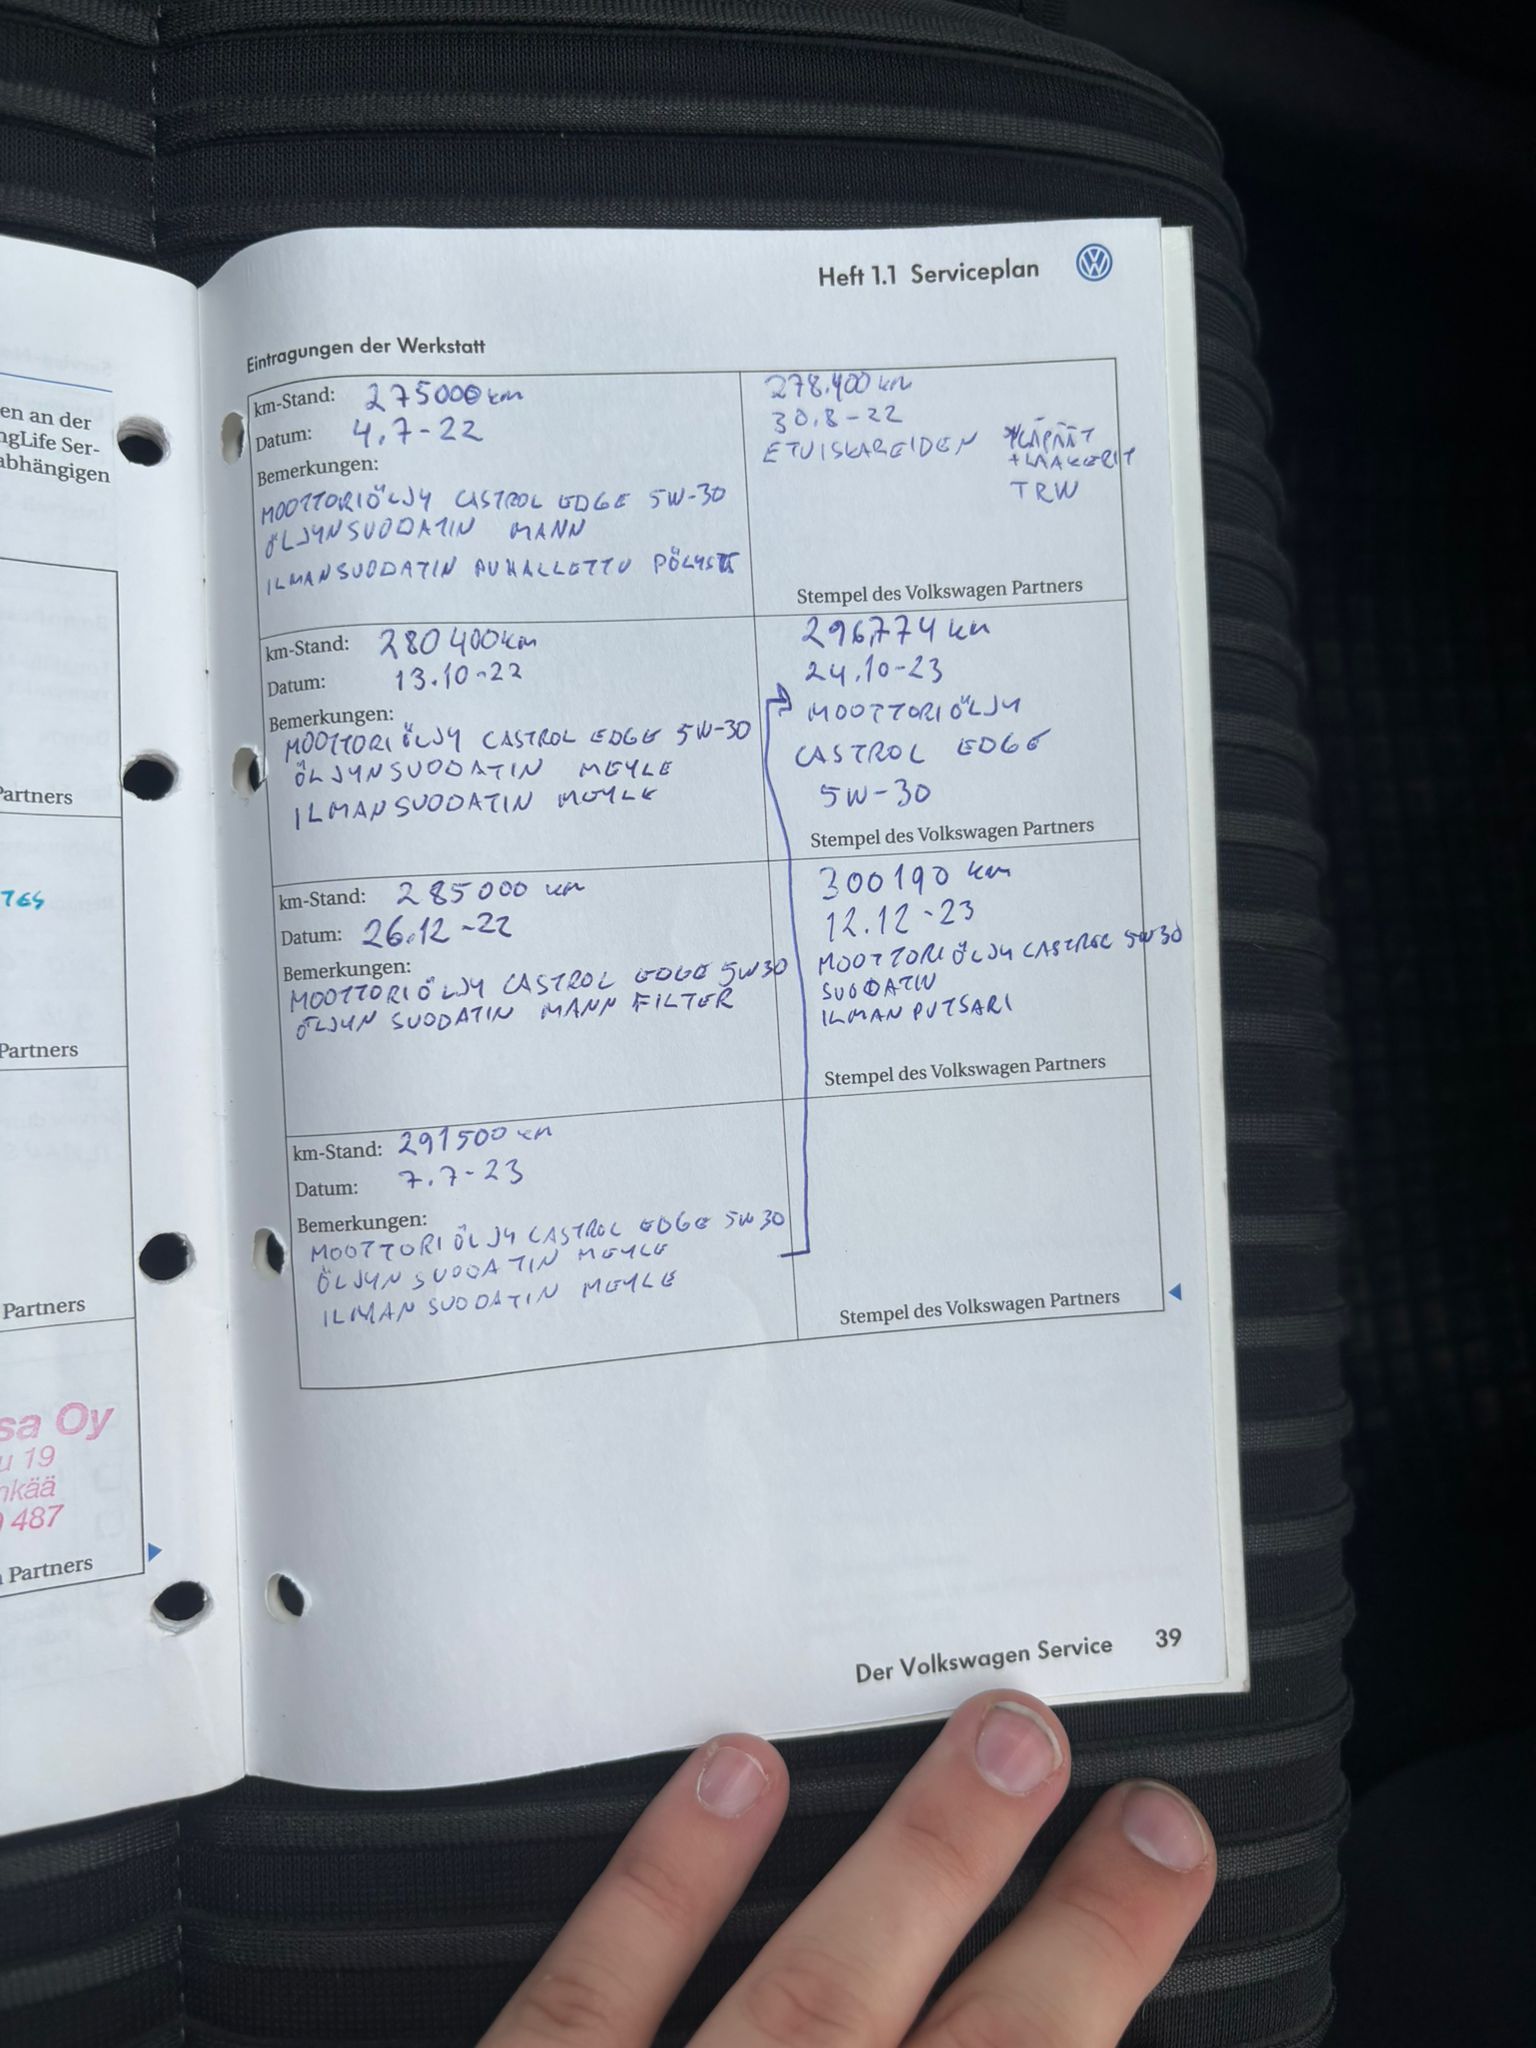 en an der
ngLife Ser-
abhängigen
Partners
Partners
Partners
sa Oy
u 19
nkää
487
Partners
Heft 1.1 Serviceplan
Eintragungen der Werkstatt
km-Stand: 275000 km
Datum: 4.7-22
Bemerkungen:
MOOTTORIÖLJY CASTROL EDGE 5W-30
ÖLJYNSUODATIN MANN
ILMANSUODATIN PUHALLETTU PÖLYSTÄ
278.400 km
30.8-22
ETUISKAREIDEN YLÄPÄÄT
+LAAKERIT
TRW
Stempel des Volkswagen Partners
km-Stand: 280400 km
Datum: 13.10-22
Bemerkungen:
MOOTTORIÖLJY CASTROL EDGE 5W-30
ÖLJYNSUODATIN MEYLE
ILMANSUODATIN MEYLE
296774 km
24.10-23
MOOTTORIÖLJY
CASTROL EDGE
5W-30
Stempel des Volkswagen Partners
km-Stand: 285000 km
Datum: 26.12-22
Bemerkungen:
MOOTTORIÖLJY CASTROL EDGE 5W30
ÖLJYN SUODATIN MANN FILTER
300190 km
12.12-23
MOOTTORIÖLJY CASTROL 5W30
SUODATIN
ILMANPUTSARI
Stempel des Volkswagen Partners
km-Stand: 291500 km
Datum: 7.7-23
Bemerkungen:
MOOTTORIÖLJY CASTROL EDGE 5W30
ÖLJYN SUODATIN MEYLE
ILMAN SUODATIN MEYLE
Stempel des Volkswagen Partners
Der Volkswagen Service 39